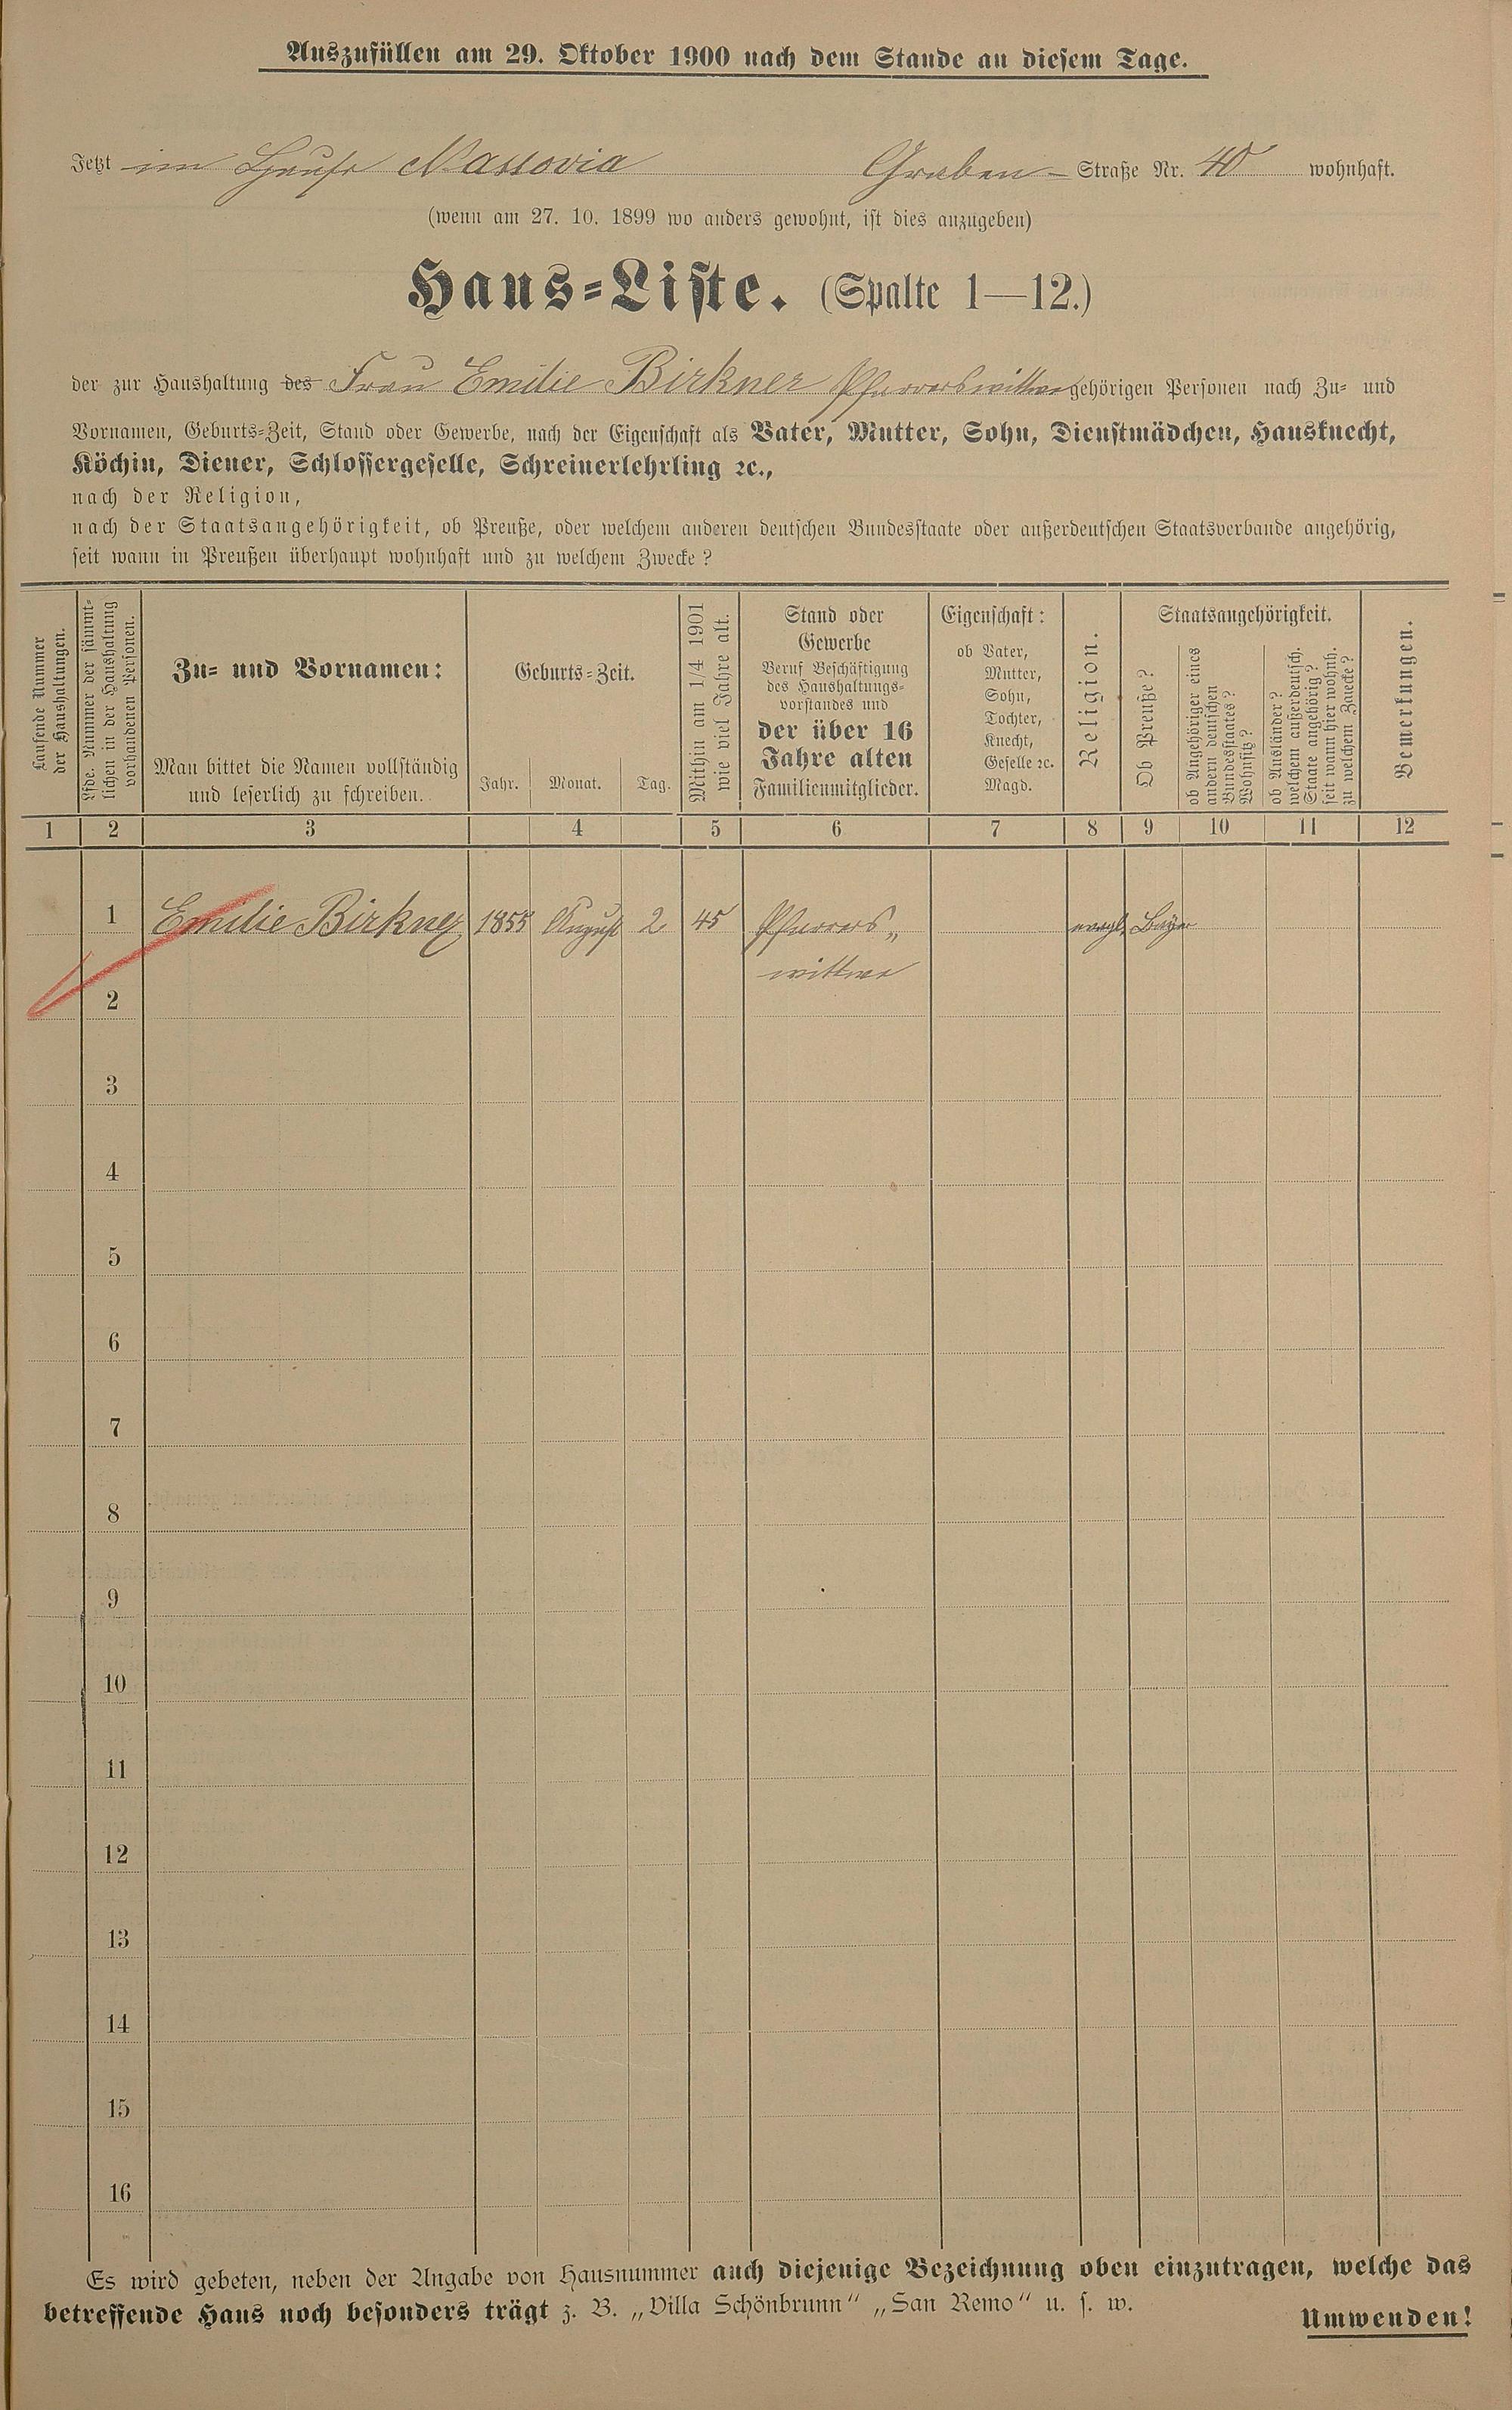 Auszufüllen am 29. Oktober 1900 nach dem Stande an diesem Tage.
Jetzt im Hause Nassovia Graben-Straße Nr. 40 wohnhaft.
(wenn am 27. 10. 1899 wo anders gewohnt, ist dies anzugeben)
Haus-Liste. (Spalte 1—12.)
der zur Haushaltung des Frau Emilie Birkner Pfarrerswittwe gehörigen Personen nach Zu- und
Vornamen, Geburts-Zeit, Stand oder Gewerbe, nach der Eigenschaft als Vater, Mutter, Sohn, Dienstmädchen, Hausknecht,
Köchin, Diener, Schlossergeselle, Schreinerlehrling ꝛc.,
nach der Religion,
nach der Staatsangehörigkeit, ob Preuße, oder welchem anderen deutschen Bundesstaate oder außerdeutschen Staatsverbande angehörig,
seit wann in Preußen überhaupt wohnhaft und zu welchem Zwecke?
Laufende Nummer
der Haushaltungen.
Lfde. Nummer der sämmt-
lichen in der Haushaltung
vorhandenen Personen.
Zu- und Vornamen:
Man bittet die Namen vollständig
und leserlich zu schreiben.
Geburts-Zeit.
Jahr. Monat. Tag.
Mithin am 1/4 1901
wie viel Jahre alt.
Stand oder
Gewerbe
Beruf Beschäftigung
des Haushaltungs-
vorstandes und
der über 16
Jahre alten
Familienmitglieder.
Eigenschaft:
ob Vater,
Mutter,
Sohn,
Tochter,
Knecht,
Geselle ꝛc.
Magd.
Religion.
Staatsangehörigkeit.
Ob Preuße?
ob Angehöriger eines
andern deutschen
Bundesstaates?
Wohnsitz?
ob Ausländer?
welchem außerdeutsch.
Staate angehörig?
seit wann hier wohnh.
zu welchem Zwecke?
Bemerkungen.
1 2 3 4 5 6 7 8 9 10 11 12
1 Emilie Birkner 1855 August 2 45 Pfarrers„ evgl. Bayer
wittwe
2
3
4
5
6
7
8
9
10
11
12
13
14
15
16
Es wird gebeten, neben der Angabe von Hausnummer auch diejenige Bezeichnung oben einzutragen, welche das
betreffende Haus noch besonders trägt z. B. „Villa Schönbrunn“ „San Remo“ u. s. w.
Umwenden!